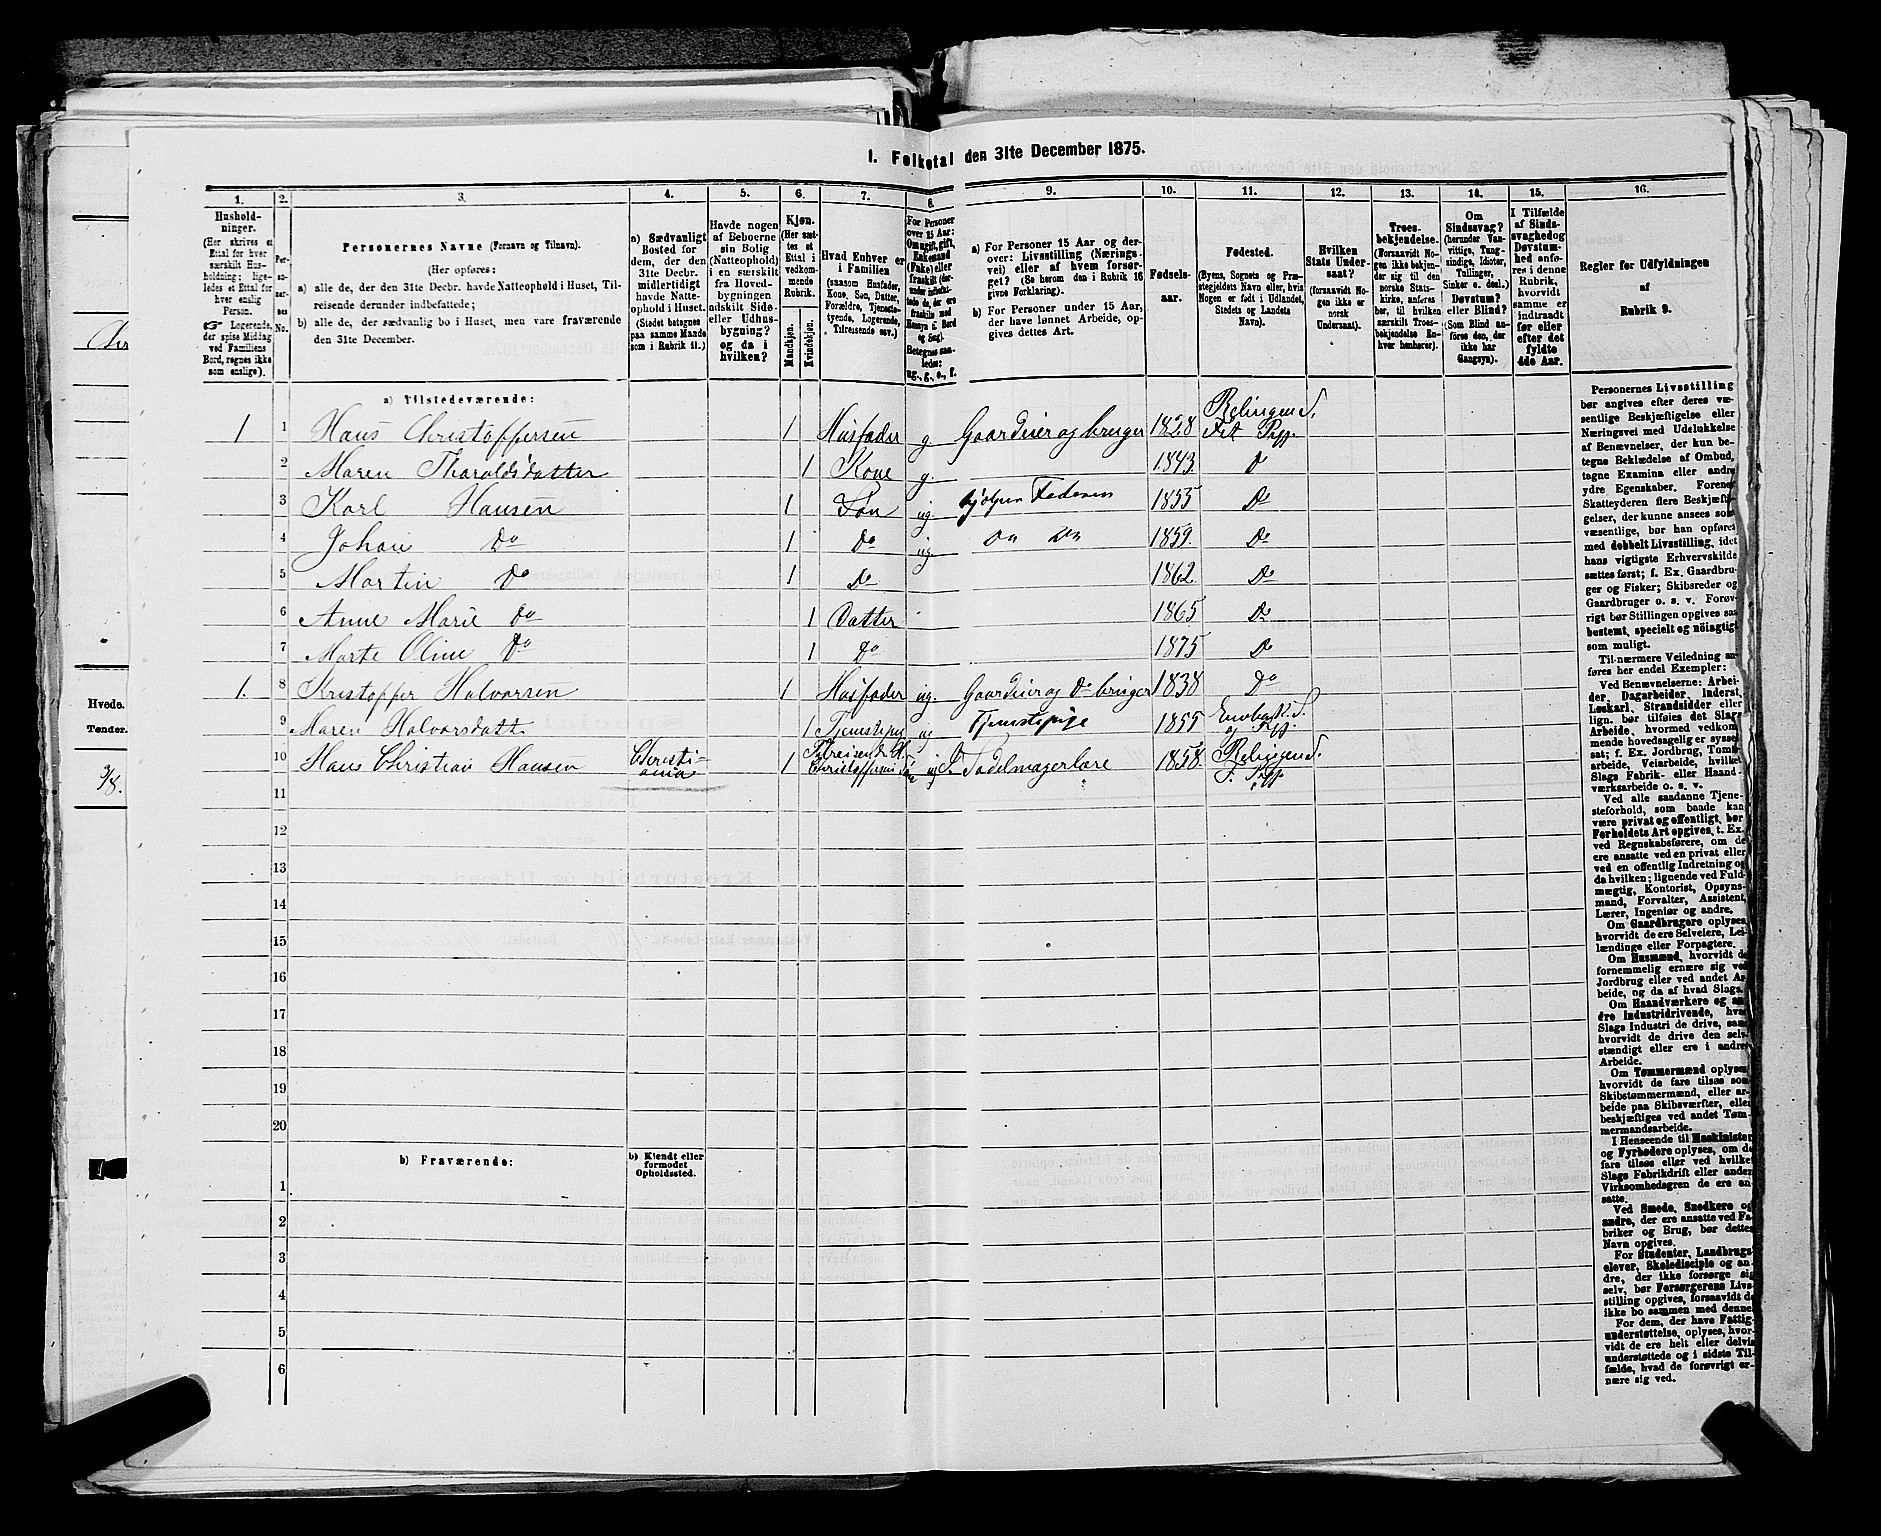 1. Folketal den 31te December 1875.
1. 2. 3. 4. 5. 6. 7. 8. 9. 10. 11. 12. 13. 14. 15. 16.
Hushold-
ninger.
(Her skrives et
Ettal for hver
særskilt Hus-
holdning; lige-
ledes et Ettal for
hver enslig
Person.
Logerende,
der spise Middag
ved Familiens
Bord, regnes ikke
som enslige).
Personernes Navne (Fornavn og Tilnavn).
(Her opføres:
a) alle de, der den 31te Decbr. havde Natteophold i Huset, Til-
reisende derunder indbefattede;
b) alle de, der sædvanlig bo i Huset, men vare fraværende
den 31te December.
a) Sædvanligt
Bosted for
dem, der den
31te Decbr.
midlertidigt
havde Natte-
ophold i Huset.
(Stedet betegnes
paa samme Maade
som i Rubrik 11.)
Havde nogen
af Beboerne
sin Bolig
(Natteophold)
i en særskilt
fra Hoved-
bygningen
adskilt Side-
eller Udhus-
bygning?
og da i
hvilken?
Kjøn.
(Her sæt-
tes et
Ettal i
vedkom-
mende
Rubrik.
Mandkjøn.
Kvindekjøn.
Hvad Enhver er
i Familien
(saasom Husfader,
Kone, Søn, Datter,
Forældre, Tjeneste-
tyende, Logerende,
Tilreisende osv.)
For Personer
over 15 Aar:
Om ugift, gift,
Enkemand
(Enke) eller
fraskilt
Betegnes saa-
ledes:
ug., g., e., f.
a) For Personer 15 Aar og der-
over: Livsstilling (Nærings-
vei) eller af hvem forsør-
get? (Se herom den i Rubrik 16
givne Forklaring).
b) For Personer under 15 Aar,
der have lønnet Arbeide, op-
gives dettes Art.
Fødsels-
aar.
Fødested.
(Byens, Sognets og Præ-
stegjeldets Navn eller, hvis
Nogen er født i Udlandet,
Stedets og Landets
Navn).
Hvilken
Stats Under-
saat?
(forsaavidt No-
gen ikke er
norsk
Undersaat).
Troes-
bekjendelse.
(Forsaavidt No-
gen ikke bekjen-
der sig til den
norske Stats-
kirke, anføres
her, til hvilken
særskilt Troes-
bekjendelse En-
hver henhører).
Om
Sindssvag?
(herunder Van-
vittige, Tung-
sindige, Idioter,
Tullinger,
Sinker o. desl.)
Døvstum?
eller Blind?
(Som Blind an-
føres den, der
ikke har
Gangsyn).
I Tilfælde
af Sinds-
svaghed og
Døvstum-
hed anfø-
res i denne
Rubrik,
hvorvidt
samme er
indtraadt
før eller
efter det
fyldte
4de Aar.
Regler for Udfyldningen
af
Rubrik 9.
a) Tilstedeværende:
1 1 Hans Christoffersen 1 Husfader g. Gaardeier og bruger 1828 Relingen S. Fet Pgj.
2 Maren Tharaldsdatter 1 Kone g. 1843. D
3 Karl Hansen 1 Søn ug. hjelper Faderen 1855 Do
4 Johan Do 1 Do ug. Do Do 1859. Do
5 Martin Do 1 Do 1862 Do
6 Anne Marie Do 1 Datter 1865 Do
7 Marte Oline Do 1 Do 1875 Do
1. 8 Kristoffer Halvorsen 1 Husfader ug. Gaardeier og Do bruger 1838 Do
9 Maren Halvorsdatt 1 Tjenestepig ug Tjenestepige 1855 Enebak S. og Pgj.
10 Hans Christian Hansen Christi-ania 1 Tilreisende H. Christoffersens Søn ug I Sadelmagerlære 1858 Relingen S. F. Pgj.
11
12
13
14
15
16
17
18
19
20
b) Fraværende:
b) Kjendt eller
formodet
Opholdssted.
1
2
3
4
5
6
Personernes Livsstilling
bør angives efter deres væ-
sentlige Beskjæftigelse eller
Næringsvei med Udelukkelse
af Benævnelser, der kun be-
tegne Beklædelse af Ombud,
tagne Examina eller andre
ydre Egenskaber. Forener
Skatteyderen flere Beskjæfti-
gelser, der kunne ansees som
væsentlige, bør han opføres
med dobbelt Livsstilling, idet
hans vigtigste Erhvervskilde
sættes først; f. Ex. Gaardbru-
ger og Fisker; Skibsreder og
Gaardbruger o. s. v. Forøv-
rigt bør Stillingen opgives saa
bestemt, specielt og nøiagtigt
som muligt.
Til nærmere Veiledning an-
føres her endel Exempler:
Ved Benævnelserne: Arbei-
der, Dagarbeider, Inderst,
Løskarl, Strandsidder eller
lign. bør tilføies det Slags
Arbeide, hvormed vedkom-
mende hovedsagelig er syssel-
sat; f. Ex. Jordbrug, Tomt-
arbeide, Veiarbeide, hvilket
Slags Fabrik- eller Haand-
værksarbeide o. s. v.
Ved alle saadanne Tjene-
steforhold, som baade kan
være privat og offentligt, bør
Forholdets Art opgives, t. Ex.
ved Regnskabsførere, om de
ere ansatte ved en privat eller
ved en offentlig Indretning og
da hvilken; lignende ved Fuld-
mægtig, Kontorist, Opsyns-
mand, Forvalter, Assistent,
Lærer, Ingeniør og andre.
Om Gaardbrugere oplyses,
hvorvidt de ere Selveiere, Lei-
lændinge eller Forpagtere.
Om Husmænd, hvorvidt de
fornemmelig ernære sig ved
Jordbrug eller ved andet Ar-
beide, og da af hvad Slags.
Om Haandværkere og an-
dre Industridrivende, hvad
Slags Industri de drive, samt
hvorvidt de drive den selv-
stændigt eller ere i andres
Arbeide.
Om Tømmermænd oplyses,
hvorvidt de fare tilsøs som
Skibstømmermænd, eller ar-
beide paa Skibsværfter, eller
beskjæftiges ved andet Tøm-
mermandsarbeide.
I Henseende til Maskinister
og Fyrbødere oplyses, om de
fare tilsøs eller ved hvilket
Slags Fabrikdrift eller anden
Virksomhedsgren de ere an-
satte.
Ved Smede, Snedkere og
andre, der ere ansatte ved Fa-
briker og Brug, bør dettes
Navn opgives.
For Studenter, Landbrugs-
elever, Skoledisciple og an-
dre, der ikke forsørge sig
selv, bør Forsørgerens Livs-
stilling opgives, forsaavidt de
ikke bo sammen med denne.
For dem, der have Fattig-
understøttelse, oplyses, hvor-
vidt de ere helt eller delvis
understøttede og i sidste Til-
fælde, hvad de forøvrigt er-
nære sig ved.
Hvede.
Tønder.
3/8.